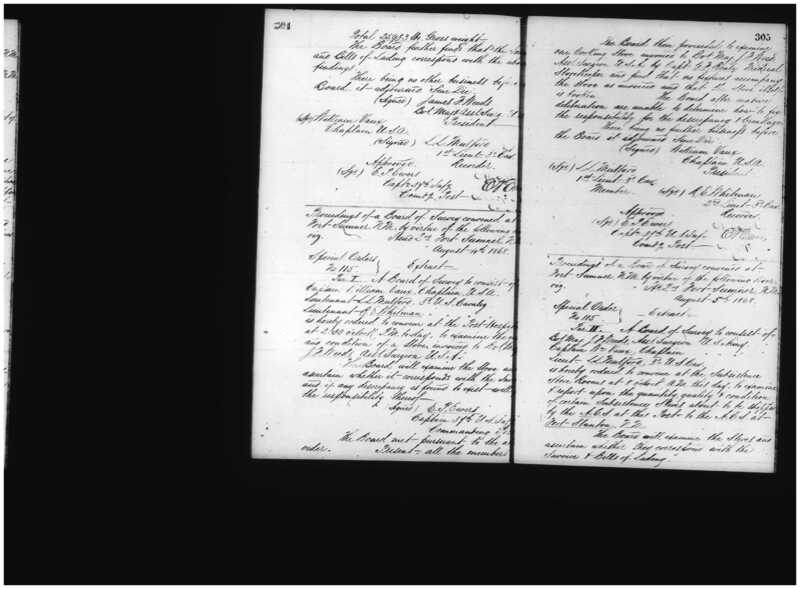 304
Total 25983 lbs Gross weight—
The Board further finds that the
and Bills of Lading correspond with the above
findings.
There being no other business before
Board, it adjourned Sine Die
(Signed) James F. Weeds
Bvt Maj & Asst Surg U.S.A.
President
(Sgd) William Vaux
Chaplain U.S.A.
(Signed) L.L. Mulford
1st Lieut 3d Cav
Recorder.
Approved
(Sgd) E.P. Ewers
Capt 37th Infy
Comdg. Post—
Proceedings of a Board of Survey convened at
Fort Sumner N.M. by virtue of the following
viz. Hdqrs Fort Sumner N.M.
August 4th 1868.
Special Orders
No 115 Extract—
Par I. A Board of Survey to consist of
Captain William Vaux Chaplain U.S.A.
Lieutenant L.L. Mulford 3d U.S. Cavalry
Lieutenant R.E. Whitman
is hereby ordered to convene at the Post Hospital
at 2.30 o'clock P.M. to day, to examine the
and condition of a Stove invoiced to Bvt Maj
J.F. Weeds Asst Surgeon U.S.A.
The Board will examine the Stove and
ascertain whether it corresponds with the
and if any discrepancy is found to exist will
the responsibility thereof—
(Signed) E.P. Ewers
Captain 37th U.S. Infy
Commanding Post
The Board met pursuant to the above
order. Present— all the members
305
The Board then proceeded to examine
one Cooking Stove invoiced to Bvt Maj J.F. Weeds
Asst Surgeon U.S.A. by Capt Medical
Storekeeper and find that no
the Stove as invoiced and that
is broken. The Board after mature
deliberation are unable to determine how to fix
the responsibility for the discrepancy &
There being no further business before
the Board it adjourned Sine Die
(Signed) William Vaux
Chaplain U.S.A.
President
(Sgd) L.L. Mulford
1st Lieut 3d Cav
Member. (Sgd) R.E. Whitman
2d Lieut 3d Cav
Recorder.
Approved
(Sgd) E.P. Ewers
Capt 37th U.S. Infy
Comdg Post—
Proceedings of a Board of Survey convened at—
Fort Sumner N.M. by virtue of the following
viz. Hdqrs Fort Sumner N.M.
August 5th 1868.
Special Orders
No 115. Extract—
Par II. A Board of Survey to consist of—
Bvt Maj J.F. Weeds Asst Surgeon U.S. Army
Captain Wm Vaux Chaplain
Lieut L.L. Mulford 3d U.S. Cav
is hereby ordered to convene at the Subsistence
Store Rooms at o'clock A.M. this day, to examine
& report upon the quantity quality & condition
of certain Subsistence Stores about to be shipped
by the A.C.S. at this Post to the A.C.S. at—
Fort Stanton N.M.
The Board will examine the Stores and
ascertain whether they correspond with the
Invoice & Bills of Lading